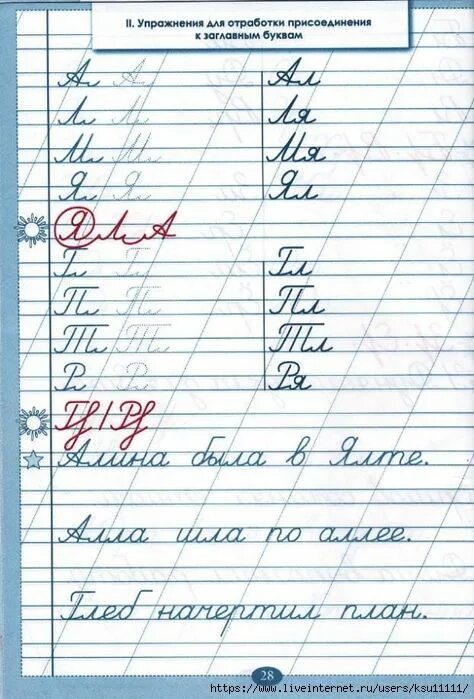 II. Упражнения для отработки присоединения
к заглавным буквам
Ал Ал Ал
Лл Лл Ля
Мл Мл Мя
Ял Ял Ял
ЯЛЛА
Гл Гл Гл
Пл Пл Пл
Тл Тл Тл
Рл Рл Ря
Алина была в Ялте.
Алла шла по аллее.
Глеб начертил план.
28
https://www.liveinternet.ru/users/ksu11111/